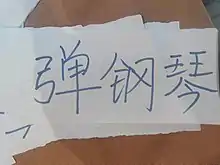 弹钢琴